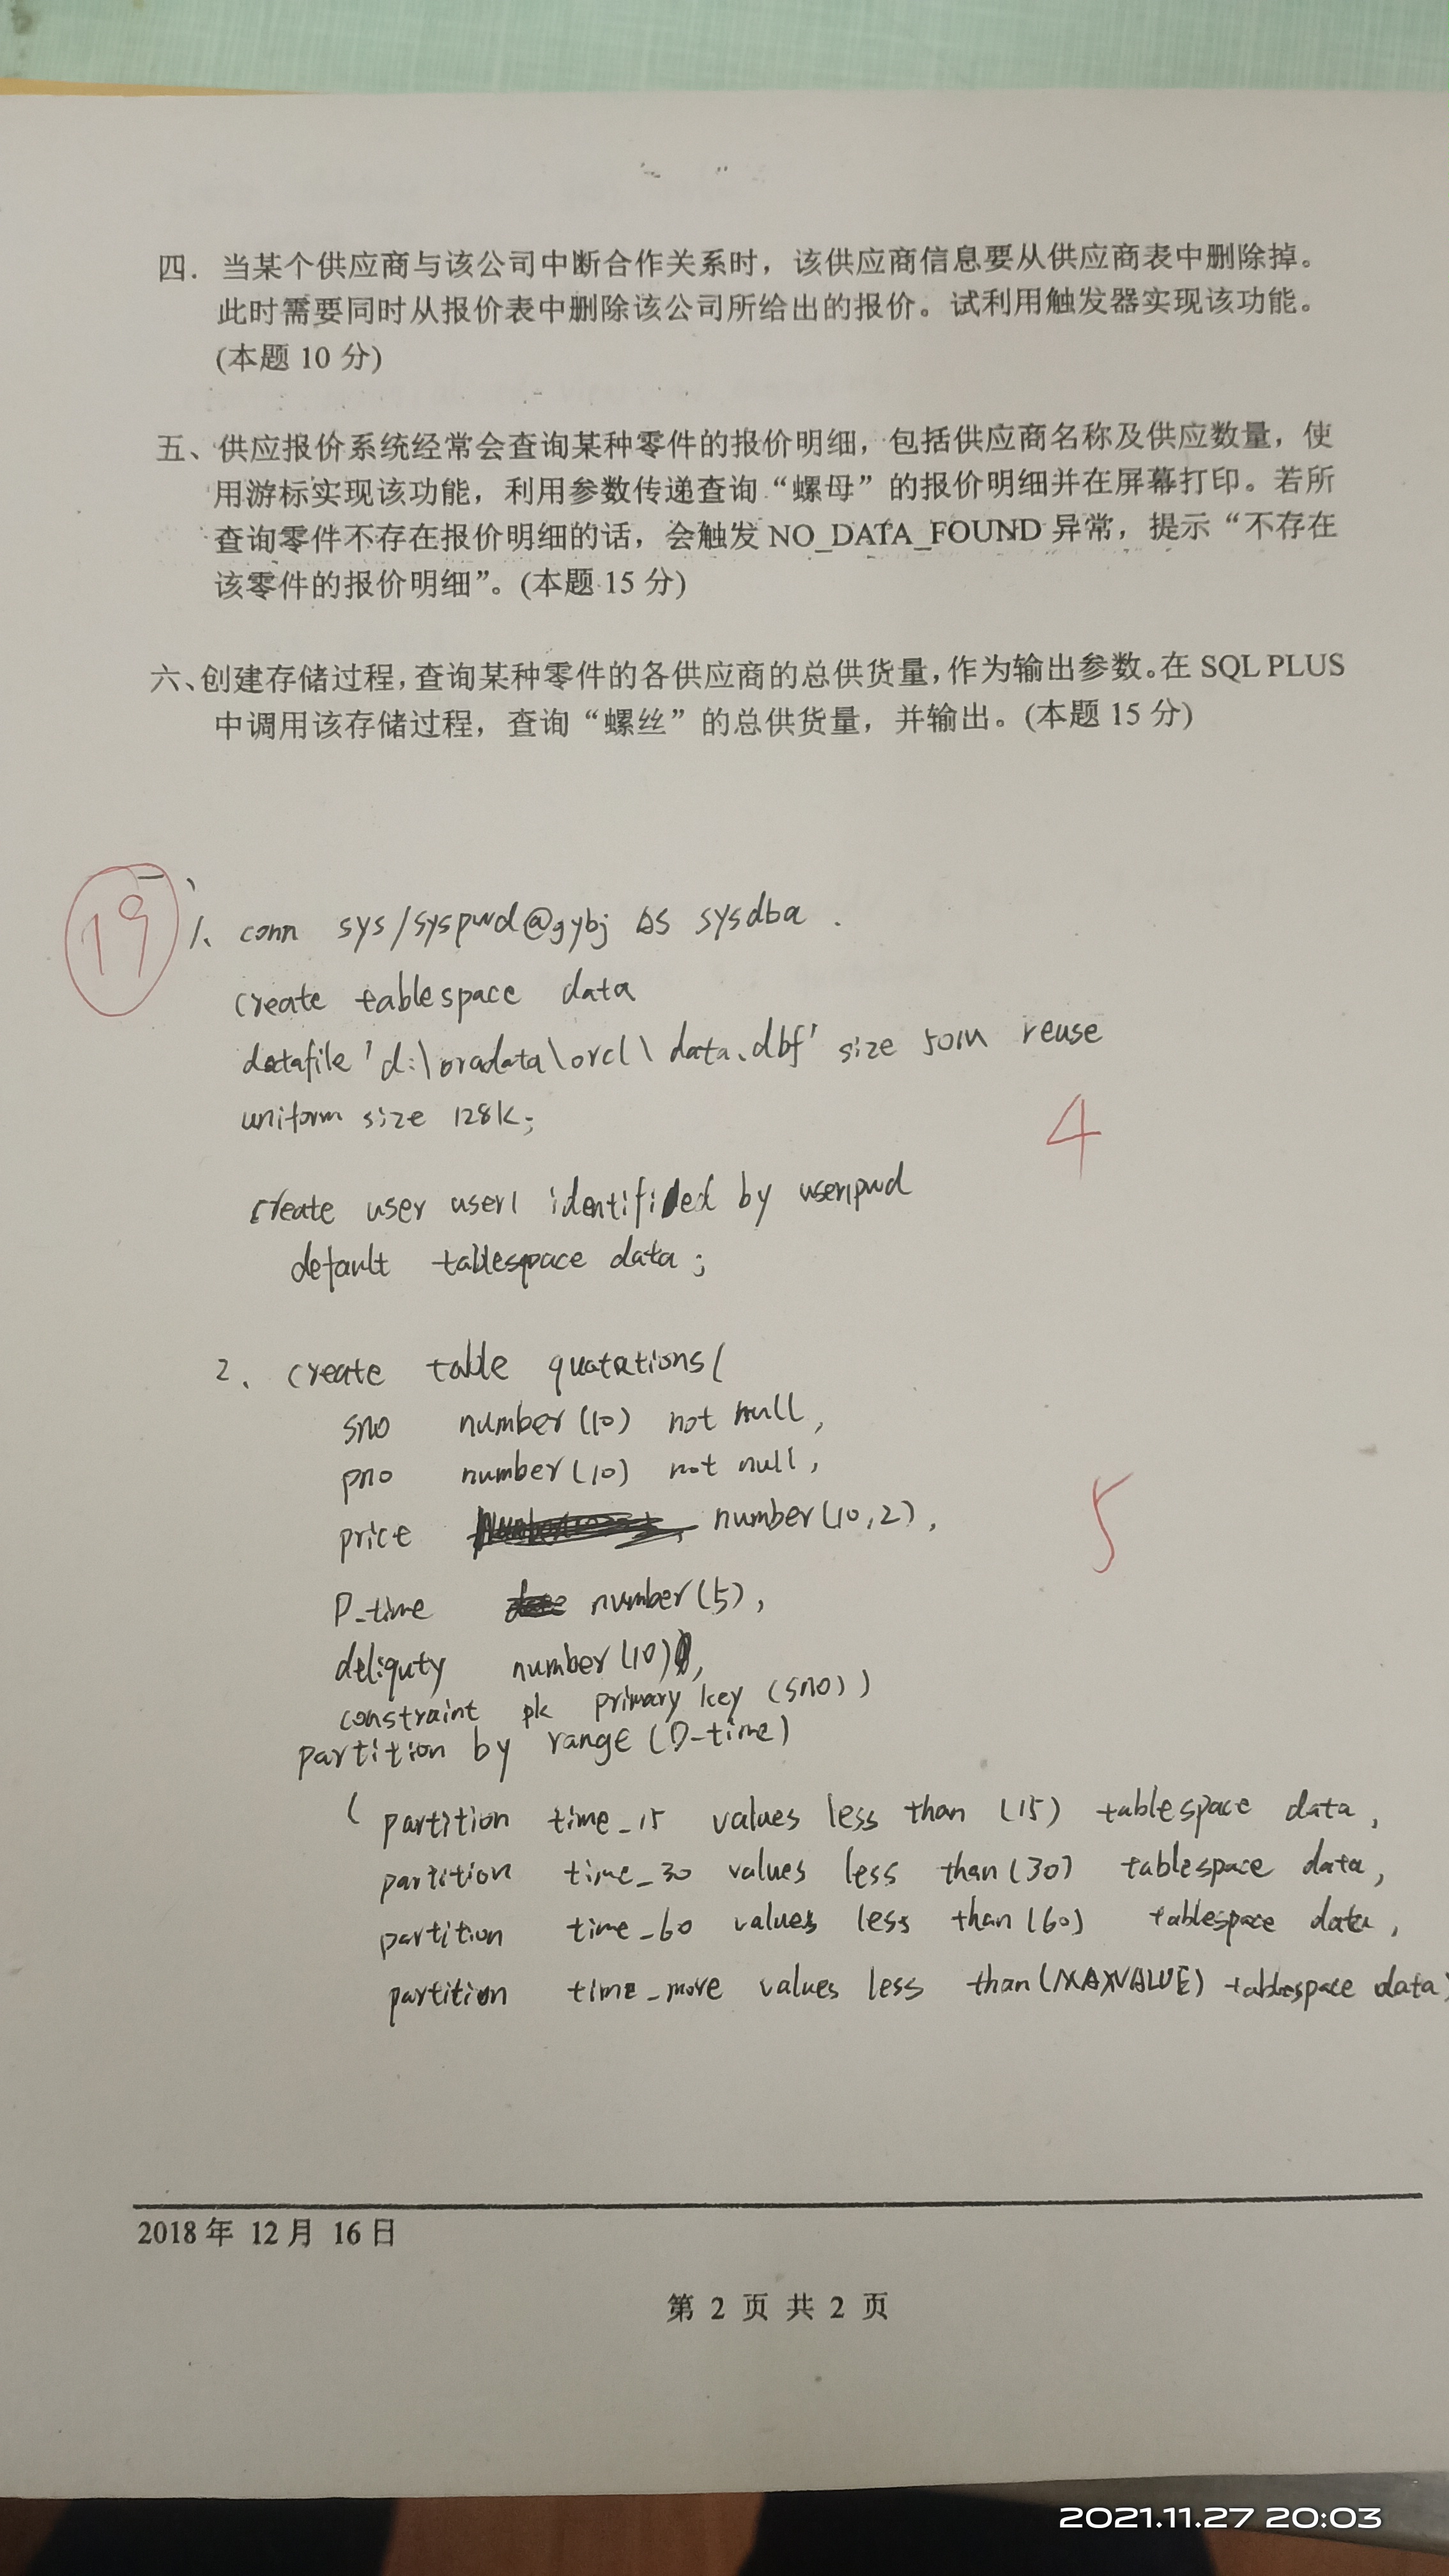 四．当某个供应商与该公司中断合作关系时，该供应商信息要从供应商表中删除掉。
此时需要同时从报价表中删除该公司所给出的报价。试利用触发器实现该功能。
(本题 10 分)
五、供应报价系统经常会查询某种零件的报价明细，包括供应商名称及供应数量，使
用游标实现该功能，利用参数传递查询“螺母”的报价明细并在屏幕打印。若所
查询零件不存在报价明细的话，会触发 NO_DATA_FOUND 异常，提示“不存在
该零件的报价明细”。(本题 15 分)
六、创建存储过程，查询某种零件的各供应商的总供货量，作为输出参数。在 SQL PLUS
中调用该存储过程，查询“螺丝”的总供货量，并输出。(本题 15 分)
19
一、
1、conn sys/syspwd@gybj as sysdba .
create tablespace data
datafile 'd:\oradata\orcl\data.dbf' size 50M reuse
uniform size 128k;
4
create user user1 identified by user1pwd
default tablespace data;
2、create table quatations(
sno number(10) not null,
pno number(10) not null,
price number(10,2),
5
D-time number(5),
deliquty number(10),
constraint pk primary key (sno))
partition by range (D-time)
( partition time_15 values less than (15) tablespace data,
partition time_30 values less than (30) tablespace data,
partition time_60 values less than (60) tablespace data,
partition time_more values less than (MAXVALUE) tablespace data)
2018 年 12 月 16 日
第 2 页 共 2 页
2021.11.27 20:03